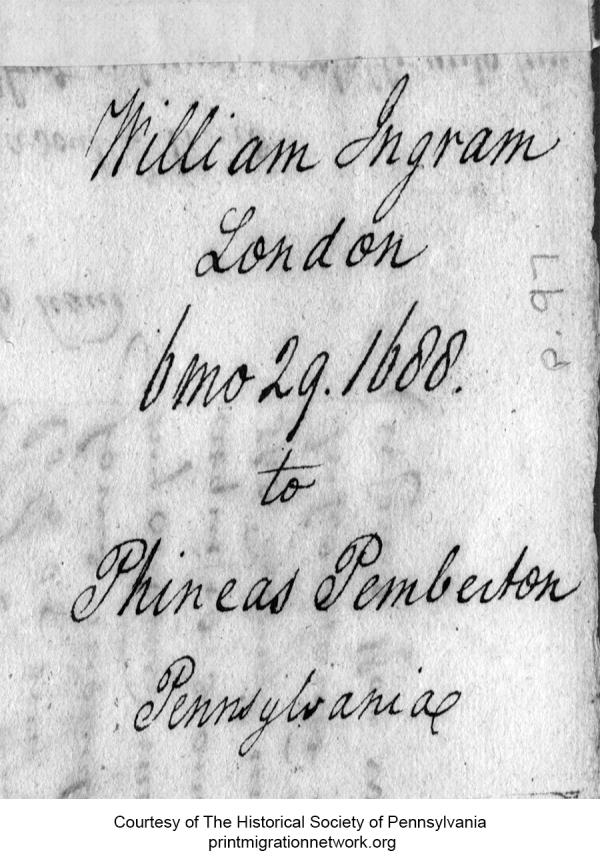 William Ingram
London
6mo 29. 1688.
to
Phineas Pemberton
Pennsylvania
p. 97
Courtesy of The Historical Society of Pennsylvania
printmigrationnetwork.org